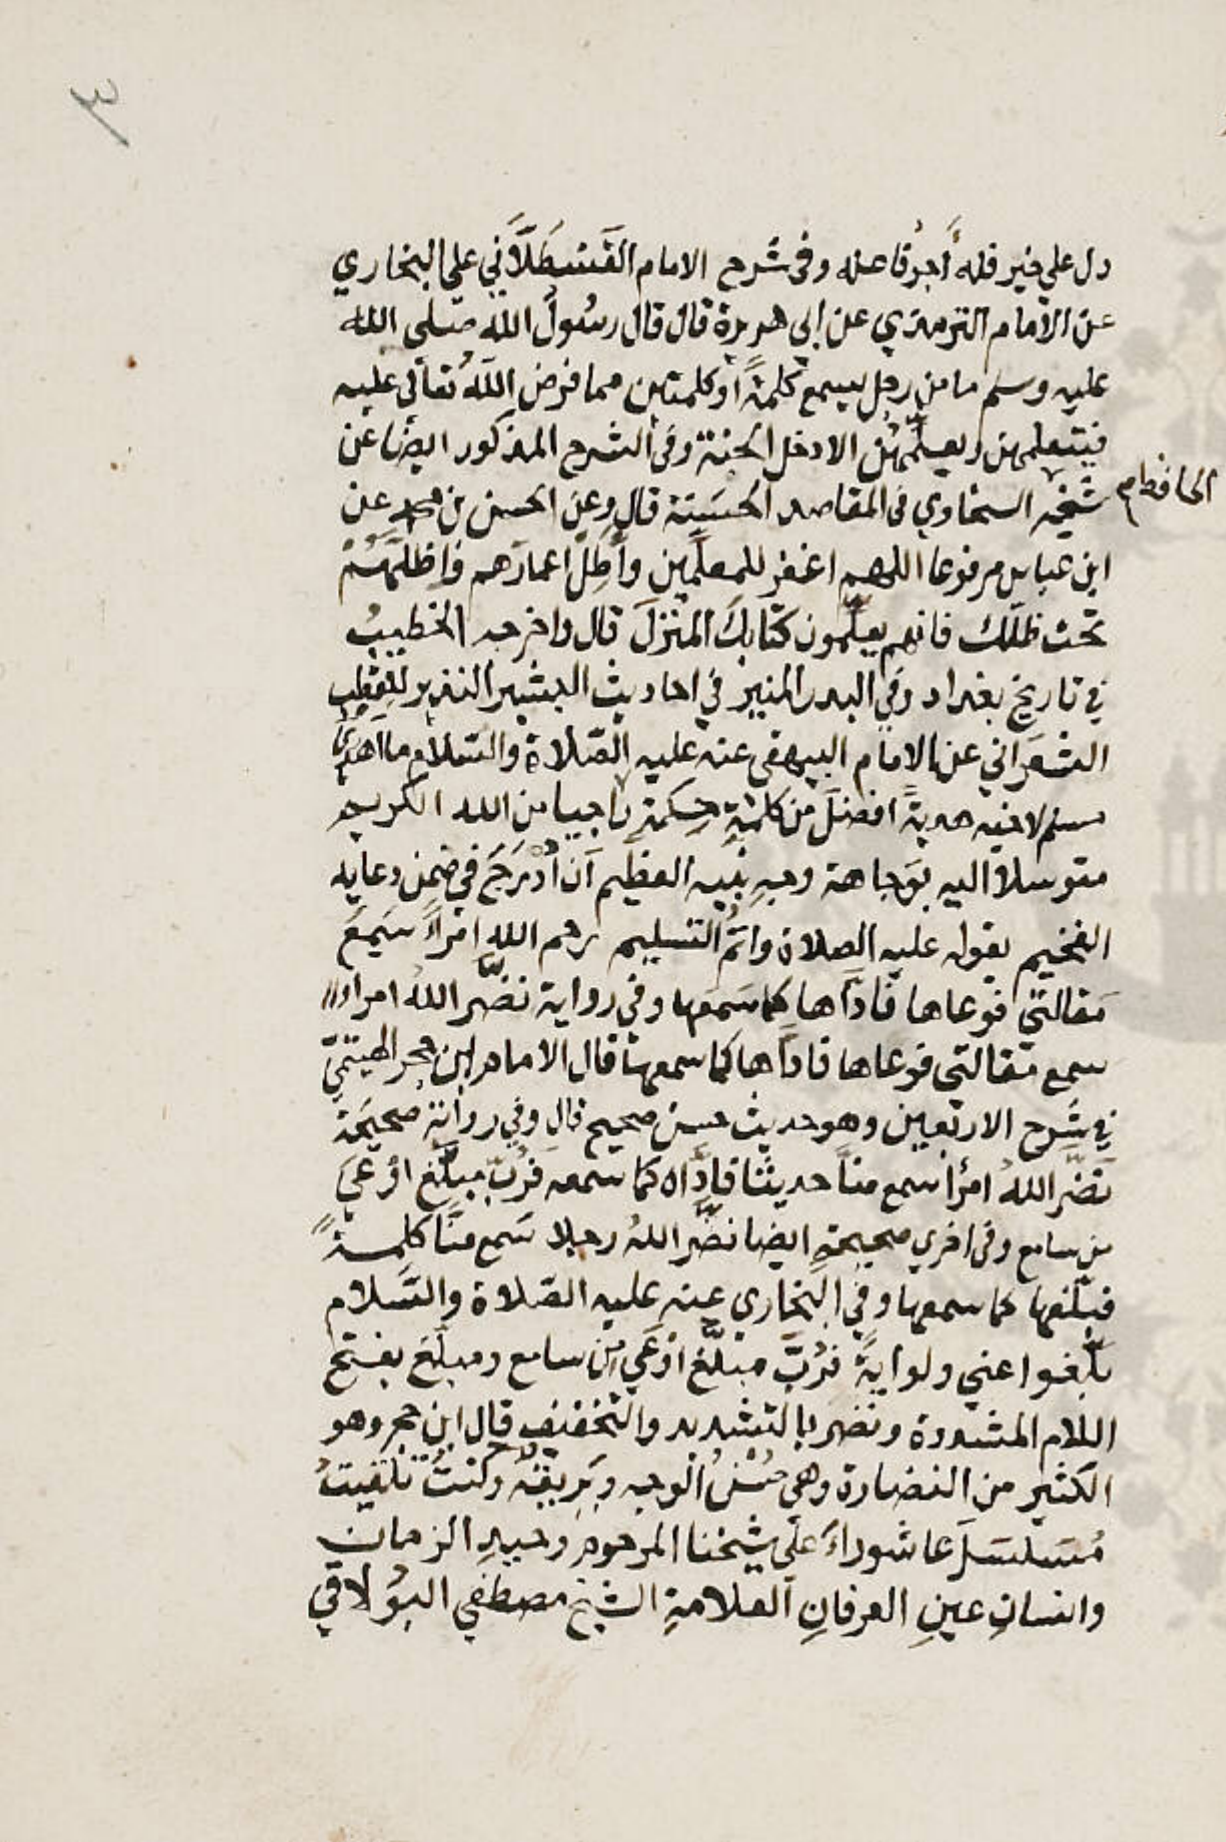 ٣
دل على خير فله أجر فاعله وفي شرح الامام القَسْطَلَّاني على البخاري
عن الامام الترمذي عن ابي هريرة قال قال رسُولُ الله صلى الله
عليه وسلم ما من رجل يسمع كلمةً أو كلمتين مما فرض اللهُ تعالى عليه
فيتعلمهن ويعلّمهُن الا دخل الجنة وفي الشرح المذكور ايضًا عن
شيخه السخاوي في المقاصد الحسَنة قال وعن الحسن بن محمد عن
الحافظ م
ابن عباس مرفوعا اللهم اغفر للمعلّمين وأطِلْ اعمارَهم وأظلَّهُمْ
تحت ظلّك فانهم يعلّمون كتابك المنزل قال واخرجه الخطيبُ
في تاريخ بغداد وفي البدر المنير في احاديث البشير النذير للقطب
الشعَراني عن الامام البيهقى عنه عليه الصّلاة والسّلام ما اهدى
مسلم لاخيه هديةً افضلَ من كلمةِ حِكمة راجيا من الله الكريم
متوسلا اليه بوَجاهة وجهِ نبيه العظيم أن أُدْرَجَ في ضمن دعايه
الفخيم بقوله عليه الصلاة واتمُّ التسليم رحم الله امرأً سَمِعَ
مَقالتي فوَعاها فأدَّاها كما سَمعَها وفي رواية نضَّر اللهُ امراً
سمع مَقالتي فوعاها فادَّاها كما سمعها قال الامام ابن حجر الهيتميّ
في شرح الاربعين وهو حديث حسن صحيح قال وفي رواية صحيحَة
نضَّر اللهُ امرأ سمع منّا حديثا فادَّاه كما سمعه فرُبّ مبلَّغ اوْعَى
من سامع وفى اخرى صحيحةٍ ايضا نضَّر اللهُ رجلا سَمع منّا كلمةً
فبلّغها كما سمعها وفي البخاري عنه عليه الصّلاة والسَّلام
بلّغوا عني ولو ايةً فرُبَّ مبلَّغ اوْعَى من سامع ومبلَّغ بفتح
اللام المشددة ونضر بالتشديد والتخفيف قال ابن حجر وهو
الكثير من النضارة وهي حُسْنُ الوجه وبَرِيقُهُ وكنتُ تلقيتُ
مُسَلسَلَ عاشوراءَ على شيخنا المرحوم وحيدِ الزمان
وانسانِ عينِ العرفانِ العلامةِ الشيخ مصطفى البُولاقي